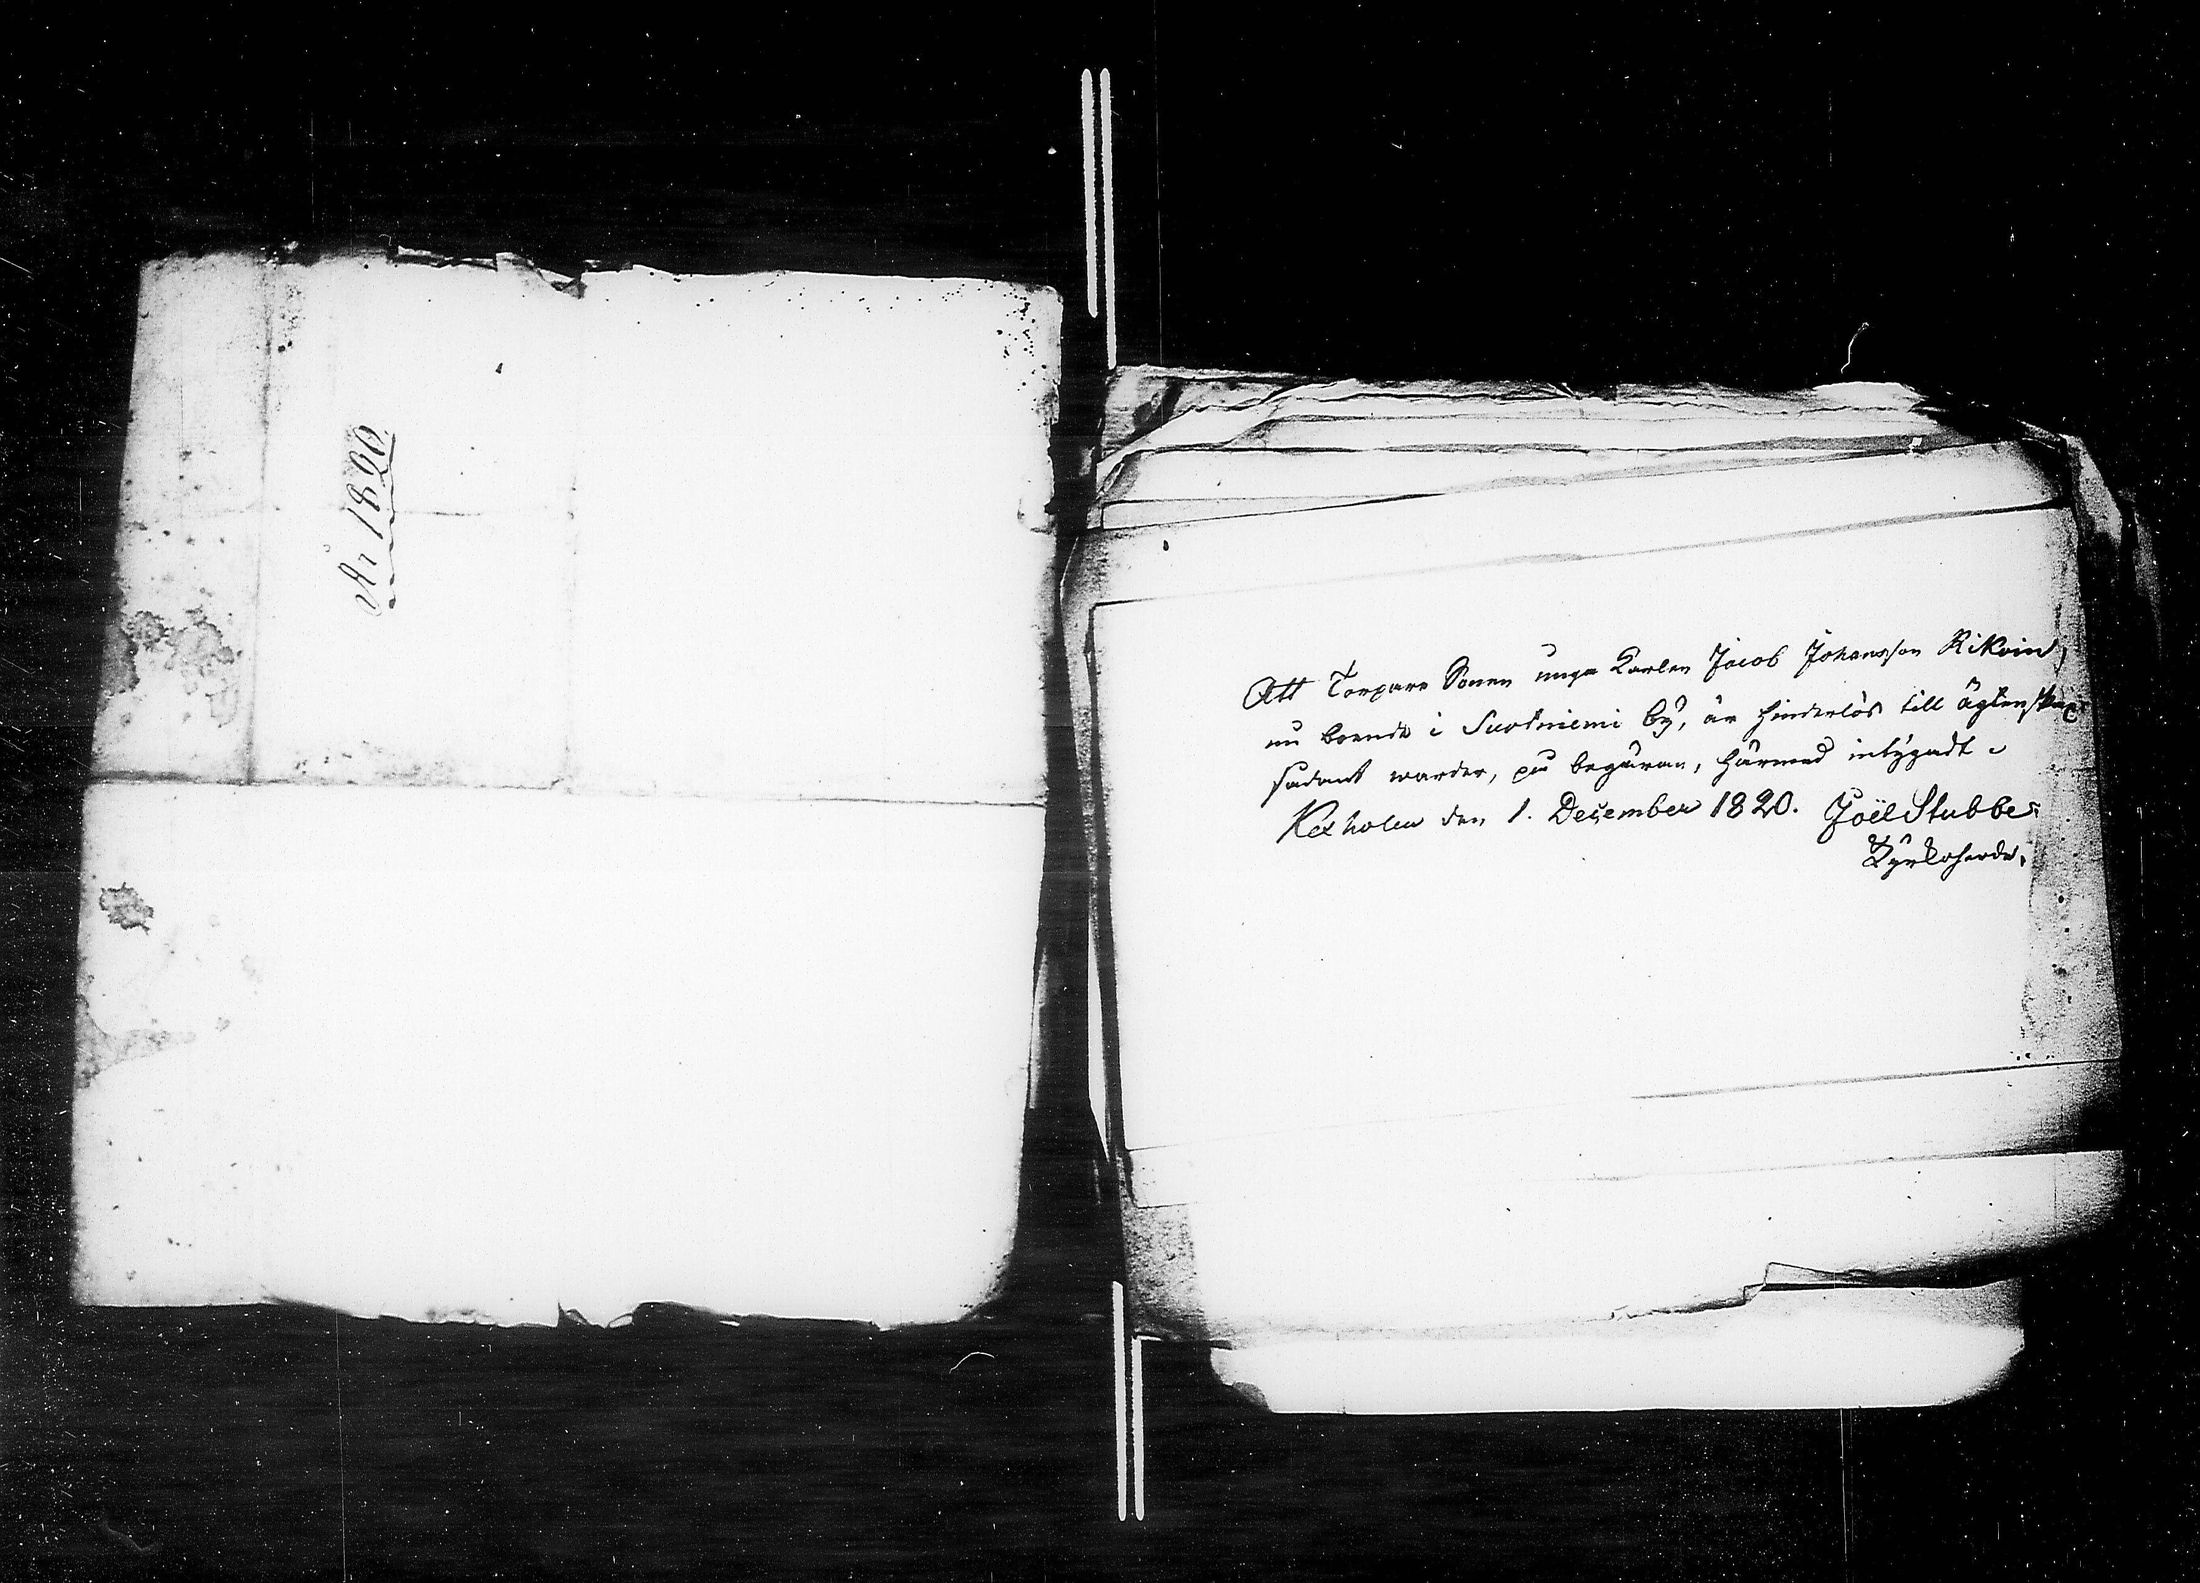 År 1820.
Att Torpare Sonen unga Karlen Jacob Johansson Rikoin,
nu boende i Suotniemi by, är hinderlös till ägtenskap
sådant warder, på begäran, härmed intygadt.
Kexholm den 1. December 1820. Joël Stubbe.
Kyrkoherde.